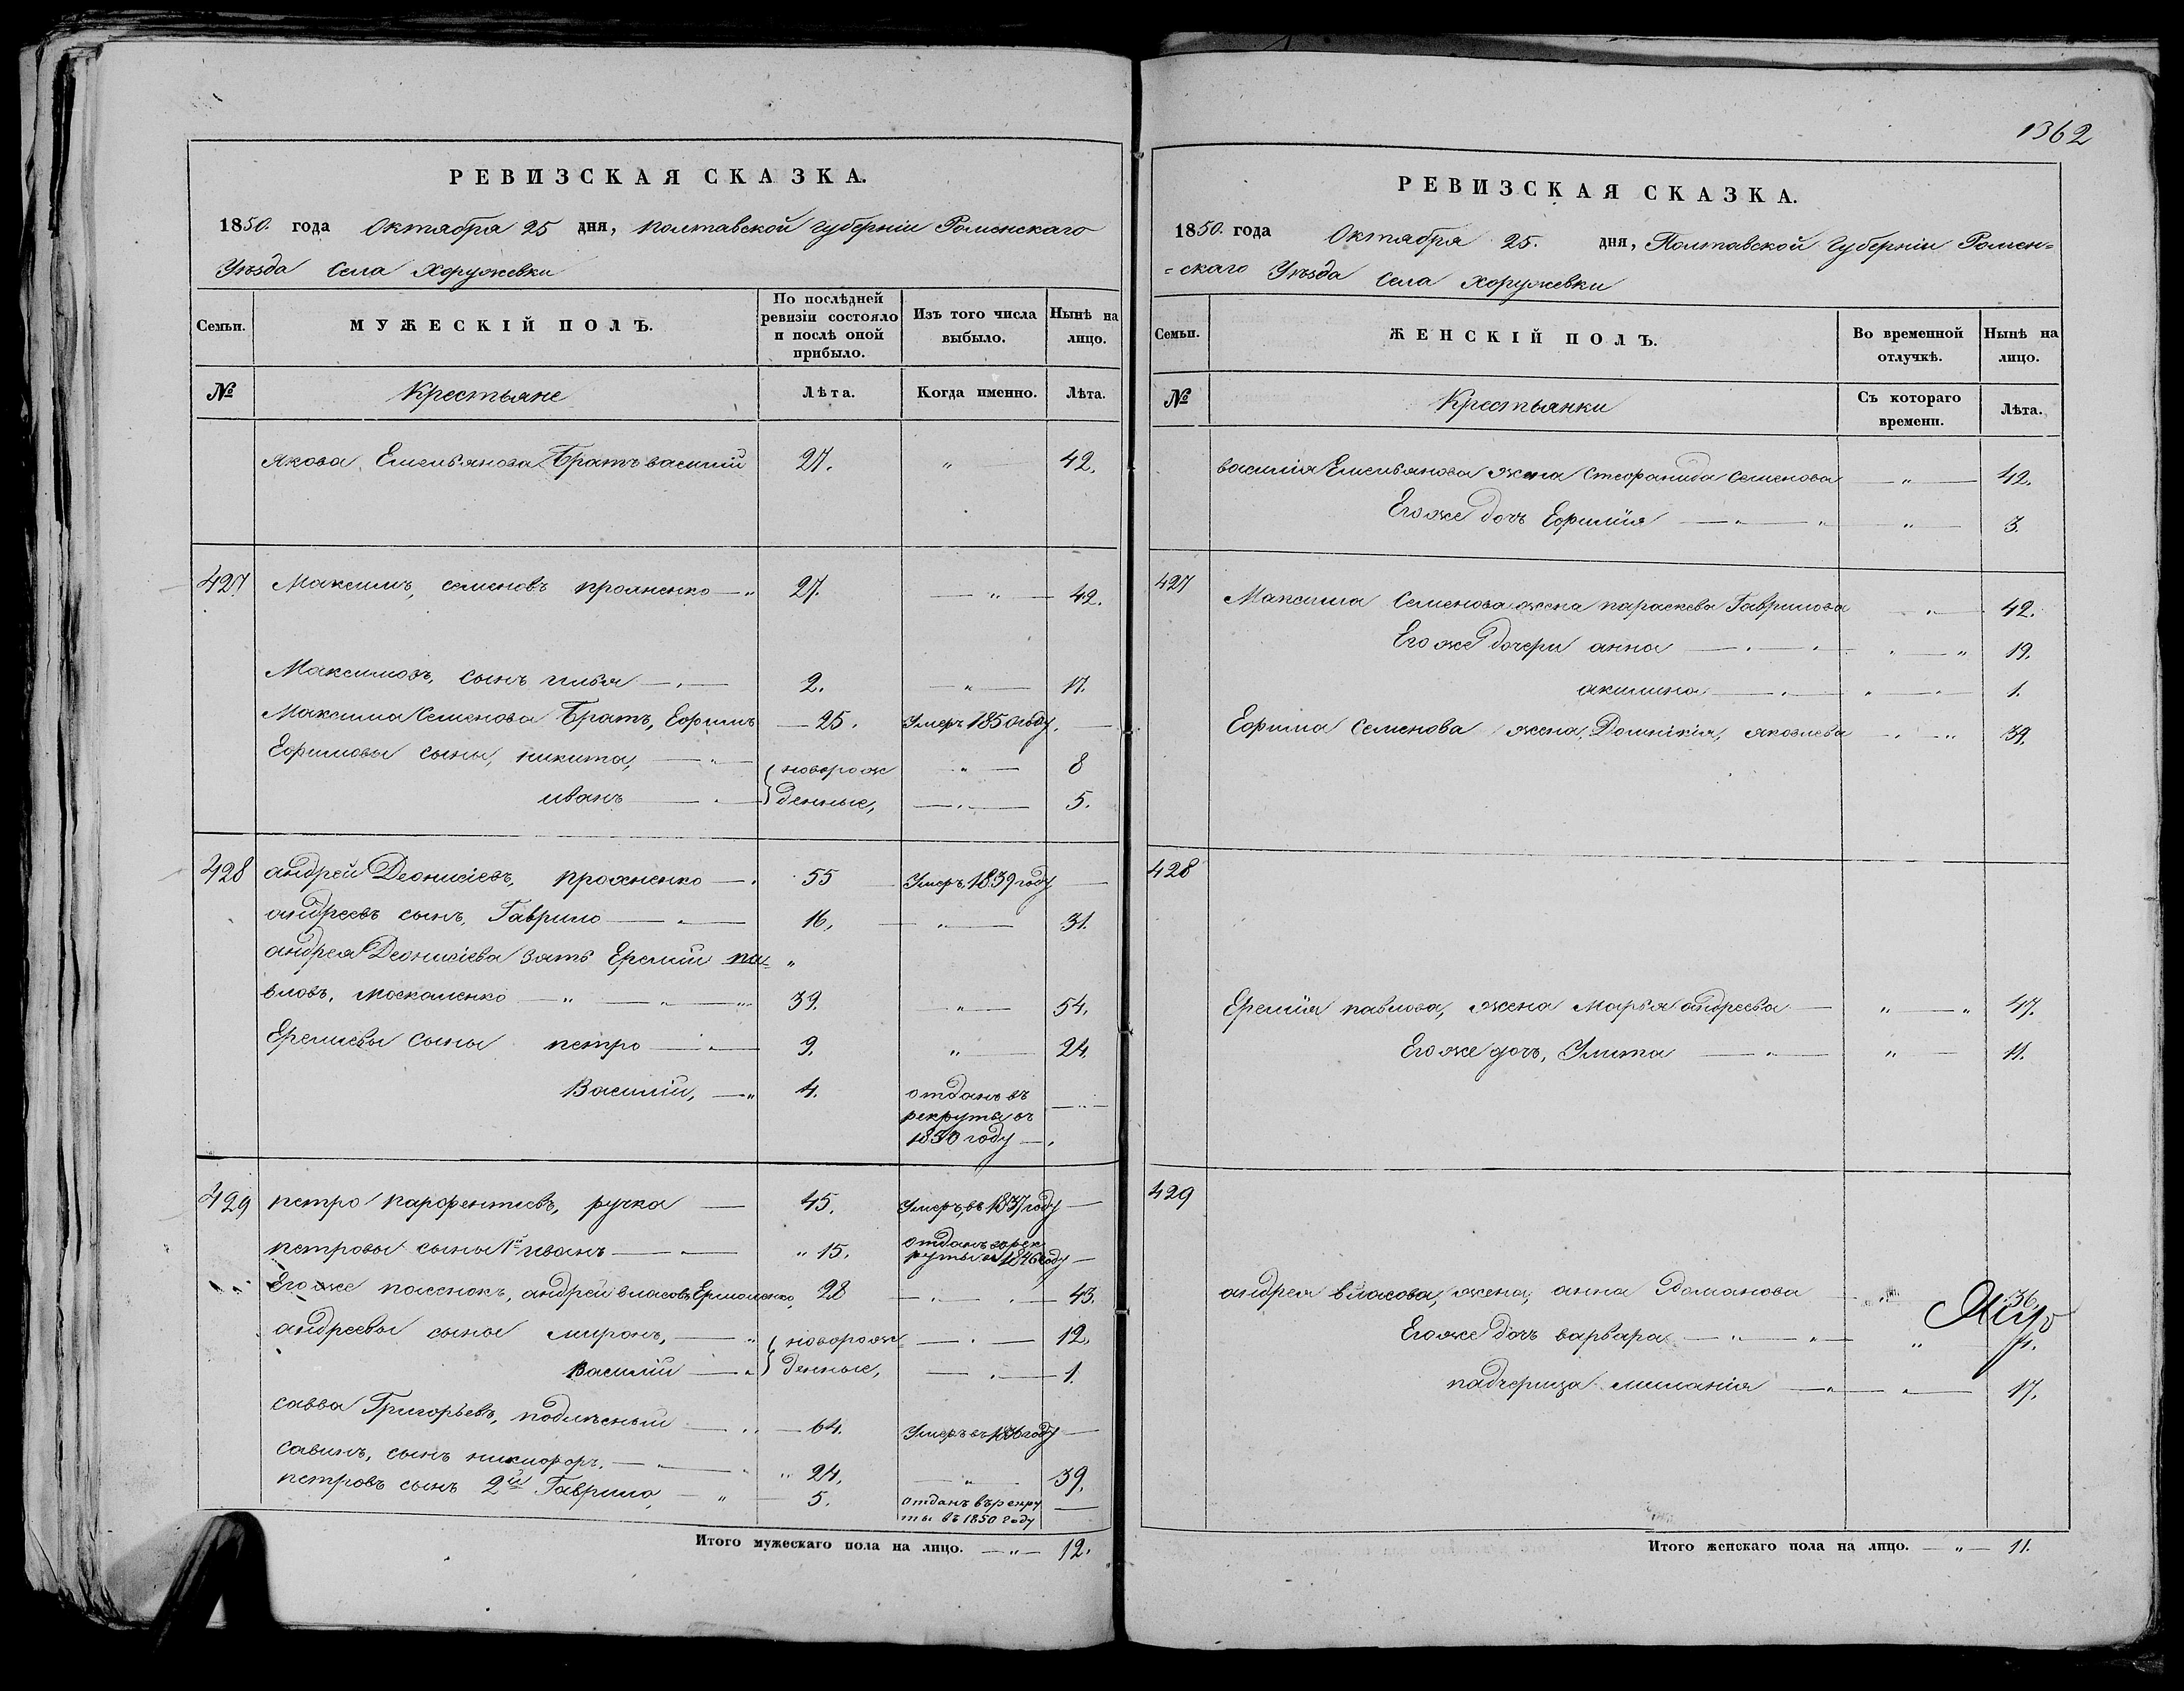 РЕВИЗСКАЯ СКАЗКА.
1850. года Октября 25 дня, Полтавской Губерніи Роменскаго
Уѣзда Села Хоружевки
Семьи. МУЖЕСКІЙ ПОЛЪ. По послѣдней ревизіи состояло и послѣ оной прибыло. Изъ того числа выбыло. Нынѣ на лицо.
№ Крестьяне Лѣта. Когда именно. Лѣта.
Якова Емельянова Братъ василій 27. " 42.
427 Максимъ, семеновъ прохненко " 27. " 42.
Максимовъ, сынъ илья 2. " 17.
Максима Семенова Братъ, Ефимъ 25. Умеръ 1850 году.
Ефимовы сыны, никита, новорож " 8
иванъ денные, 5.
428 андрей Деонисіевъ, прохненко 55 Умеръ 1839 году
андреевъ сынъ, Гаврило 16, " 31.
андрея Деонисіева зять Еремій па= "
вловъ, москаленко " 39. " 54.
Еремѣевы сыны петро 9. " 24.
Василій, " 4. отданъ въ
рекруты въ
1850 году
429 петро парфентіевъ, ручка 45. Умеръ въ 1837 году
петровы сыны 1й иванъ " 15. отданъ в рек
руты в 1846 году
Егоже
андрей власовъ Ермоленко, 28 43.
андреевы сыны миронъ, " новорож 12.
василій денные, 1.
савва Григорьевъ, 64. Умеръ въ 1836 году
савинъ, сынъ никифоръ, " 24, " 39.
петровъ сынъ 2й Гаврило, " 5. отданъ въ рекру
ты въ 1850 году
Итого мужескаго пола на лицо. " 12.
1362
РЕВИЗСКАЯ СКАЗКА.
1850. года Октября 25. дня, Полтавской Губерніи Ромен=
=скаго Уѣзда Села Хоружевки
Семьи. ЖЕНСКІЙ ПОЛЪ. Во временной отлучкѣ. Нынѣ на лицо.
№ Крестьянки Съ котораго времени. Лѣта.
василія Емельянова жена Стефанида семенова " 42.
Егоже дочь Ефимія " " 3.
427 Максима Семенова жена параскева Гаврилова " 42.
Егоже дочери анна " 19.
акилина " 1.
Ефима Семенова жена, Домникія, яковлева " 39.
428
Еремія павлова, жена Марья андреева " " 47.
Егоже дочь, Улита " " 11.
429
андрея власова, жена, анна Романова " 36.
Егоже дочь варвара " "
падчерица меланія " 17.
Итого женскаго пола на лицо. " 11.